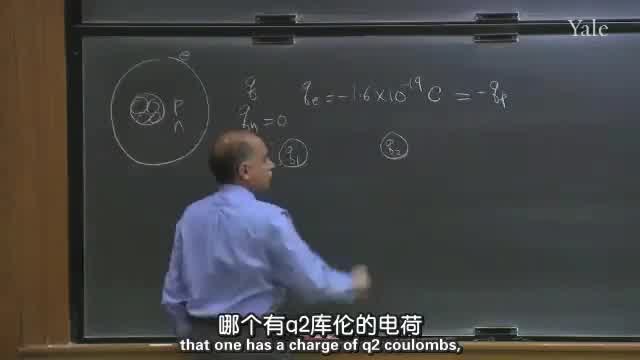 Yale
e
p
n
q
q_e = -1.6 × 10^-19 C = -q_p
q_n = 0
q_1
q_2
哪个有q2库伦的电荷
that one has a charge of q2 coulombs,